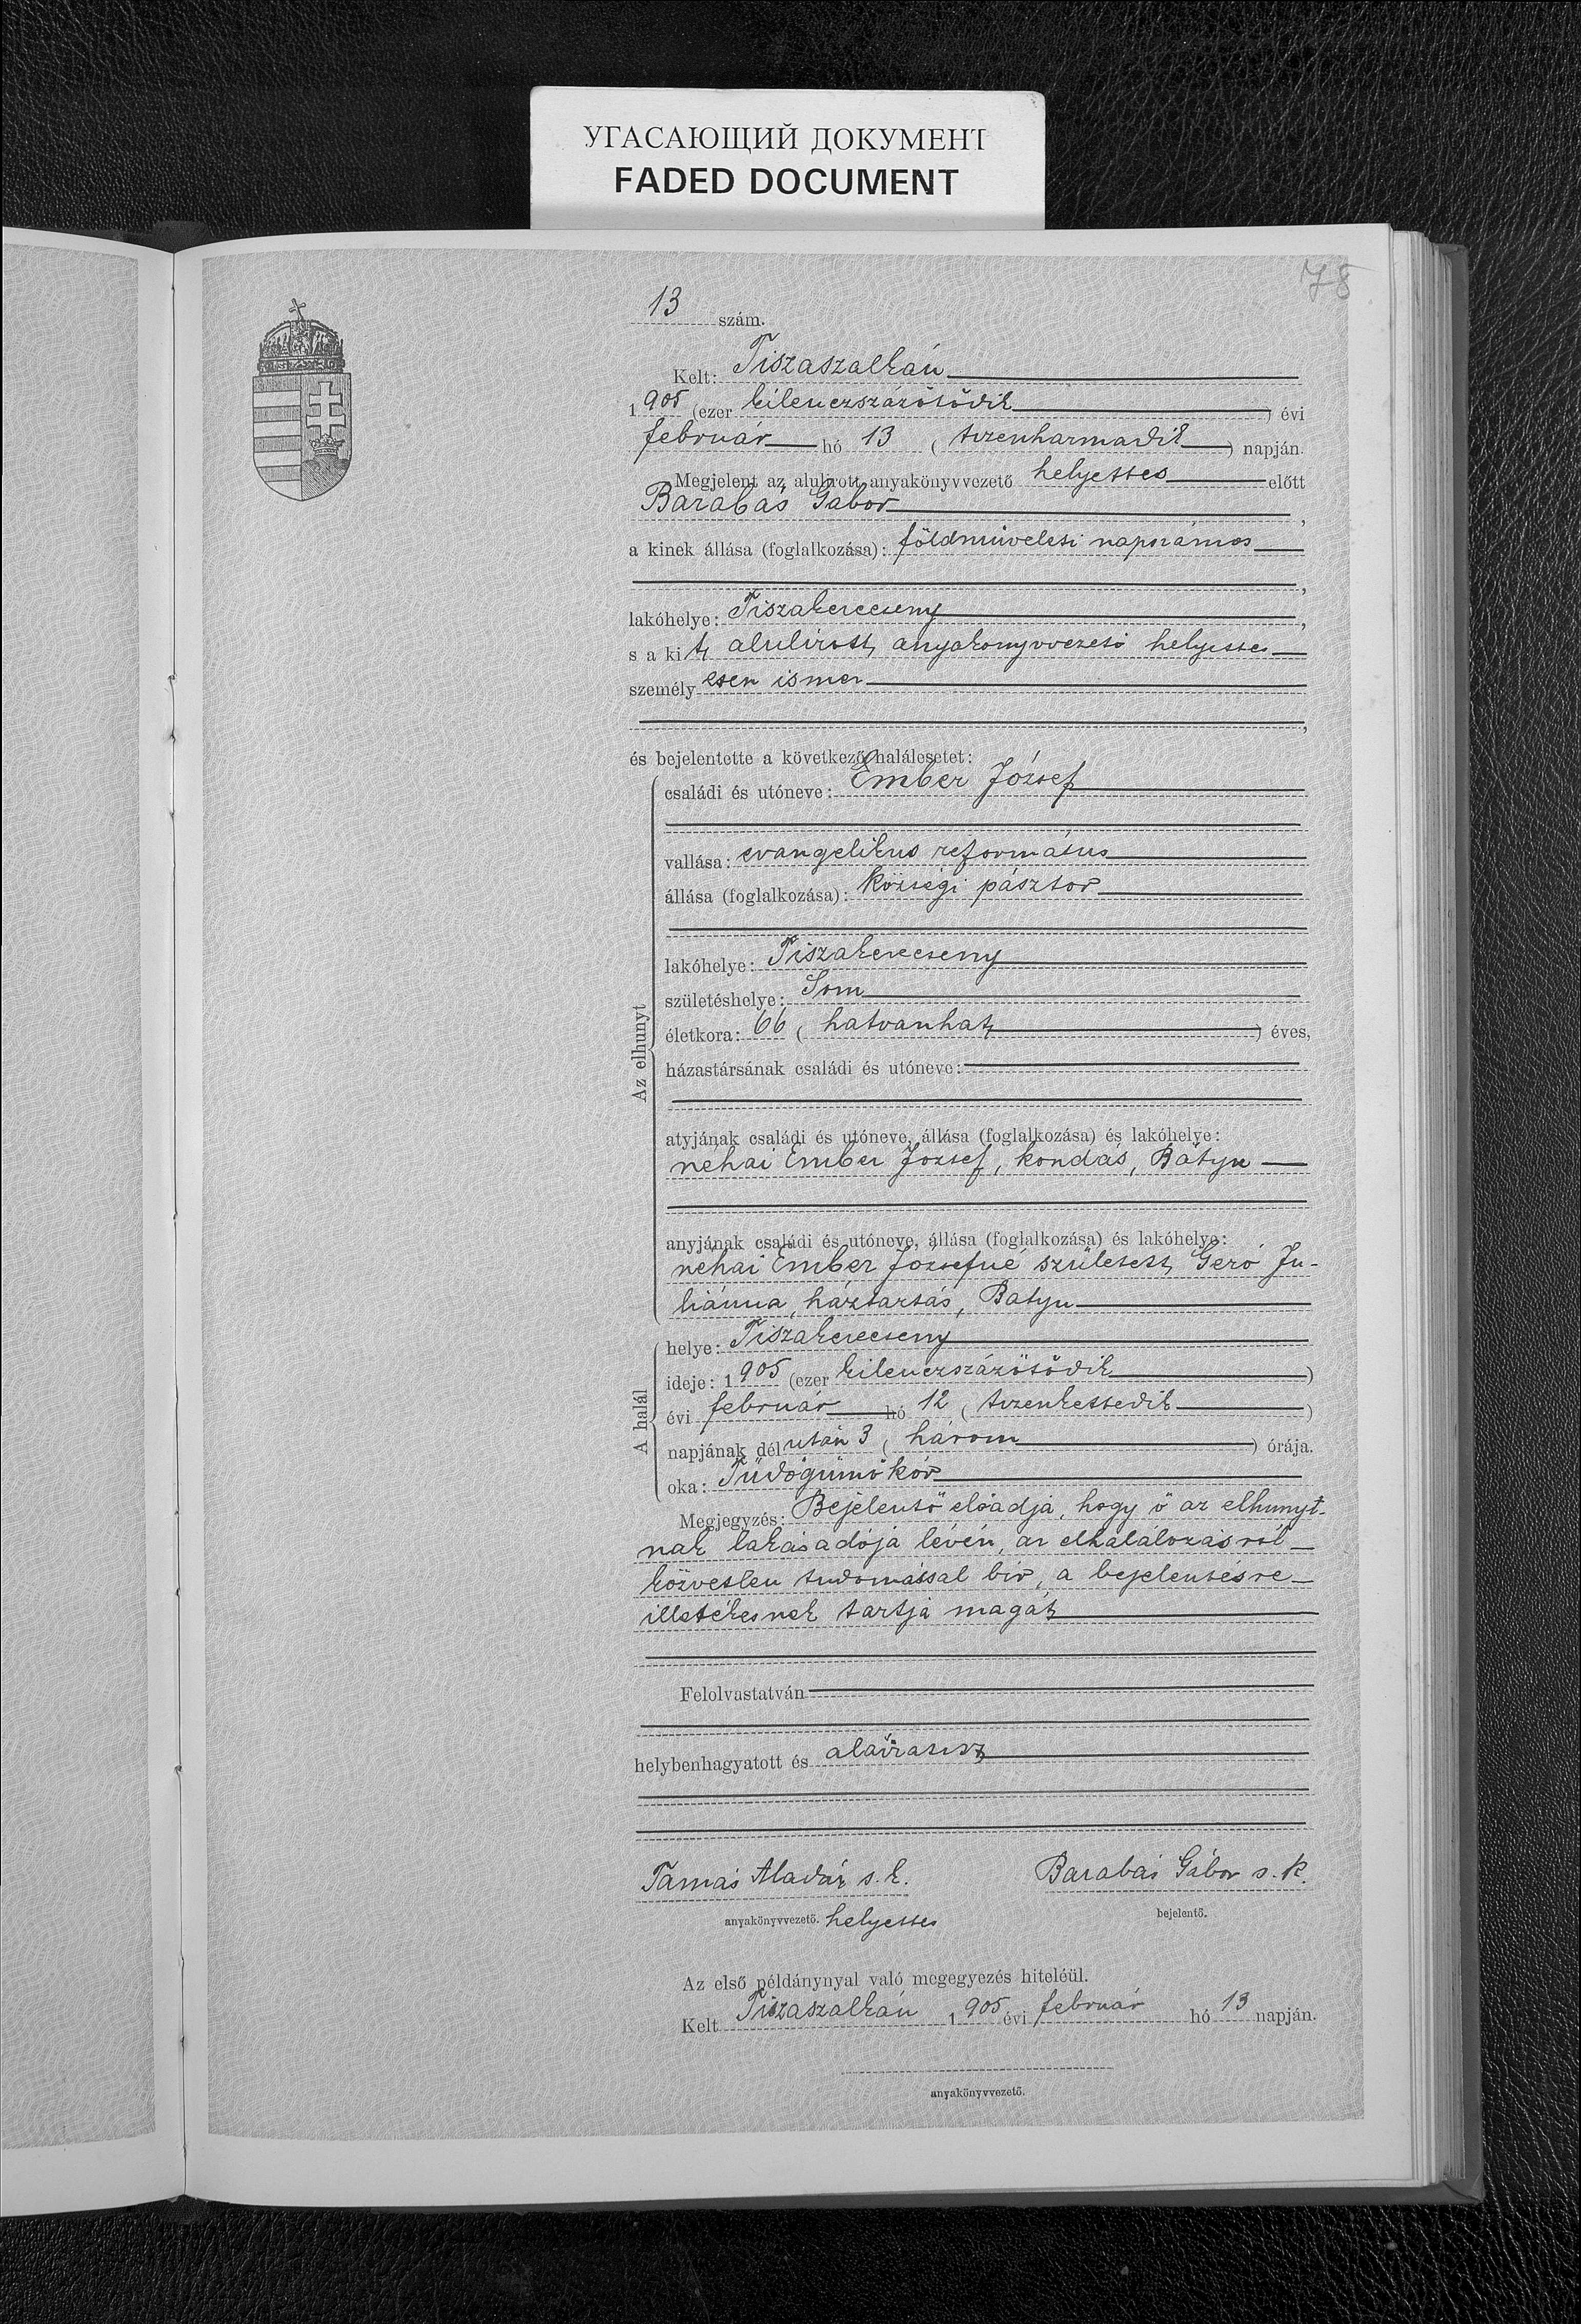 УГАСАЮЩИЙ ДОКУМЕНТ
FADED DOCUMENT
78
13 szám.
Kelt: Tiszaszalkán
1905 (ezer kilenczszázötödik) évi
február hó 13 (tizenharmadik) napján.
Megjelent az alulirott anyakönyvvezető helyettes előtt
Barabás Gábor,
a kinek állása (foglalkozása): földmüvelesi napszámos
,
lakóhelye: Tiszakerecseny,
s a kit alulirott anyakönyvvezető helyettes
személyesen ismer
,
és bejelentette a következő halálesetet:
Az elhunyt
családi és utóneve: Ember József
vallása: evangelikus református
állása (foglalkozása): községi pásztor
lakóhelye: Tiszakerecseny
születéshelye: Som
életkora: 66 (hatvanhat) éves,
házastársának családi és utóneve:
atyjának családi és utóneve, állása (foglalkozása) és lakóhelye:
néhai Ember József, kondás, Bátyu
anyjának családi és utóneve, állása (foglalkozása) és lakóhelye:
néhai Ember Józsefné született Gerő Ju-
liánna, háztartás, Batyu
A halál
helye: Tiszakerecseny
ideje: 1905 (ezer kilenczszázötödik)
évi február hó 12 (tizenkettedik)
napjának délután 3 (három) órája.
oka: Tüdőgümőkór
Megjegyzés: Bejelentő előadja, hogy ő az elhunyt-
nak lakásadója lévén, az elhalálozásról
közvetlen tudomással bir, a bejelentésre
illetékesnek tartja magát
Felolvastatván
helybenhagyatott és aláíratott
Tamás Aladár s. k. Barabás Gábor s. k.
anyakönyvvezető. helyettes bejelentő.
Az első példánynyal való megegyezés hiteléül.
Kelt Tiszaszalkán 1905 évi február hó 13 napján.
anyakönyvvezető.